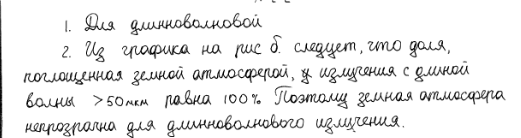 1. Для длинноволновой
2. Из графика на рис б. следует, что доля,
поглощенная земной атмосферой, у излучения с длиной
волны >50мкм равна 100% Поэтому земная атмосфера
непрозрачна для длинноволнового излучения.